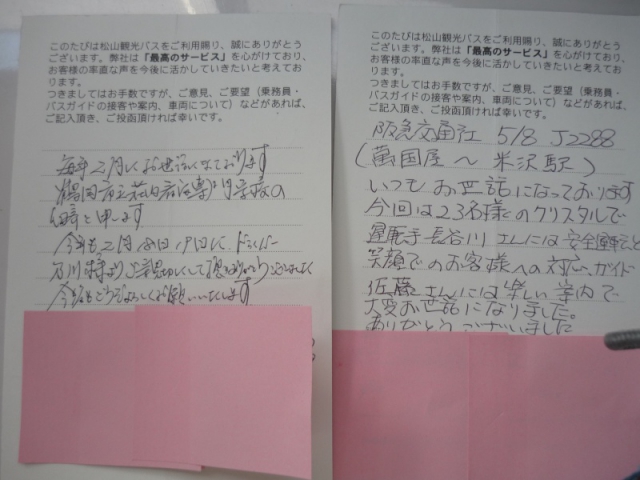 このたびは松山観光バスをご利用賜り、誠にありがとう
ございます。弊社は「最高のサービス」を心がけており、
お客様の率直な声を今後に活かしていきたいと考えてお
ります。
つきましてはお手数ですが、ご意見、ご要望（乗務員・
バスガイドの接客や案内、車両について）などがあれば、
ご記入頂き、ご投函頂ければ幸いです。
毎年2月にお世話になております
鶴岡市立荘内看護専門学校の
と申します
今年も2月 日 9日に、ドライバー
石川様よりご親切にして頂きありがとうございました
今後もどうぞよろしくお願いいたします
このたびは松山観光バスをご利用賜り、誠にありがとう
ございます。弊社は「最高のサービス」を心がけており、
お客様の率直な声を今後に活かしていきたいと考えてお
ります。
つきましてはお手数ですが、ご意見、ご要望（乗務員・
バスガイドの接客や案内、車両について）などがあれば、
ご記入頂き、ご投函頂ければ幸いです。
阪急交通社 5/8 J2288
(萬国屋～米沢駅)
いつもお世話になっております
今回は23名様とのクリスタルで
運転手長谷川さんには安全運転と
笑顔でのお客様への対応、ガイド
佐藤さんには楽しい案内で
大変お世話になりました。
ありがとうございました